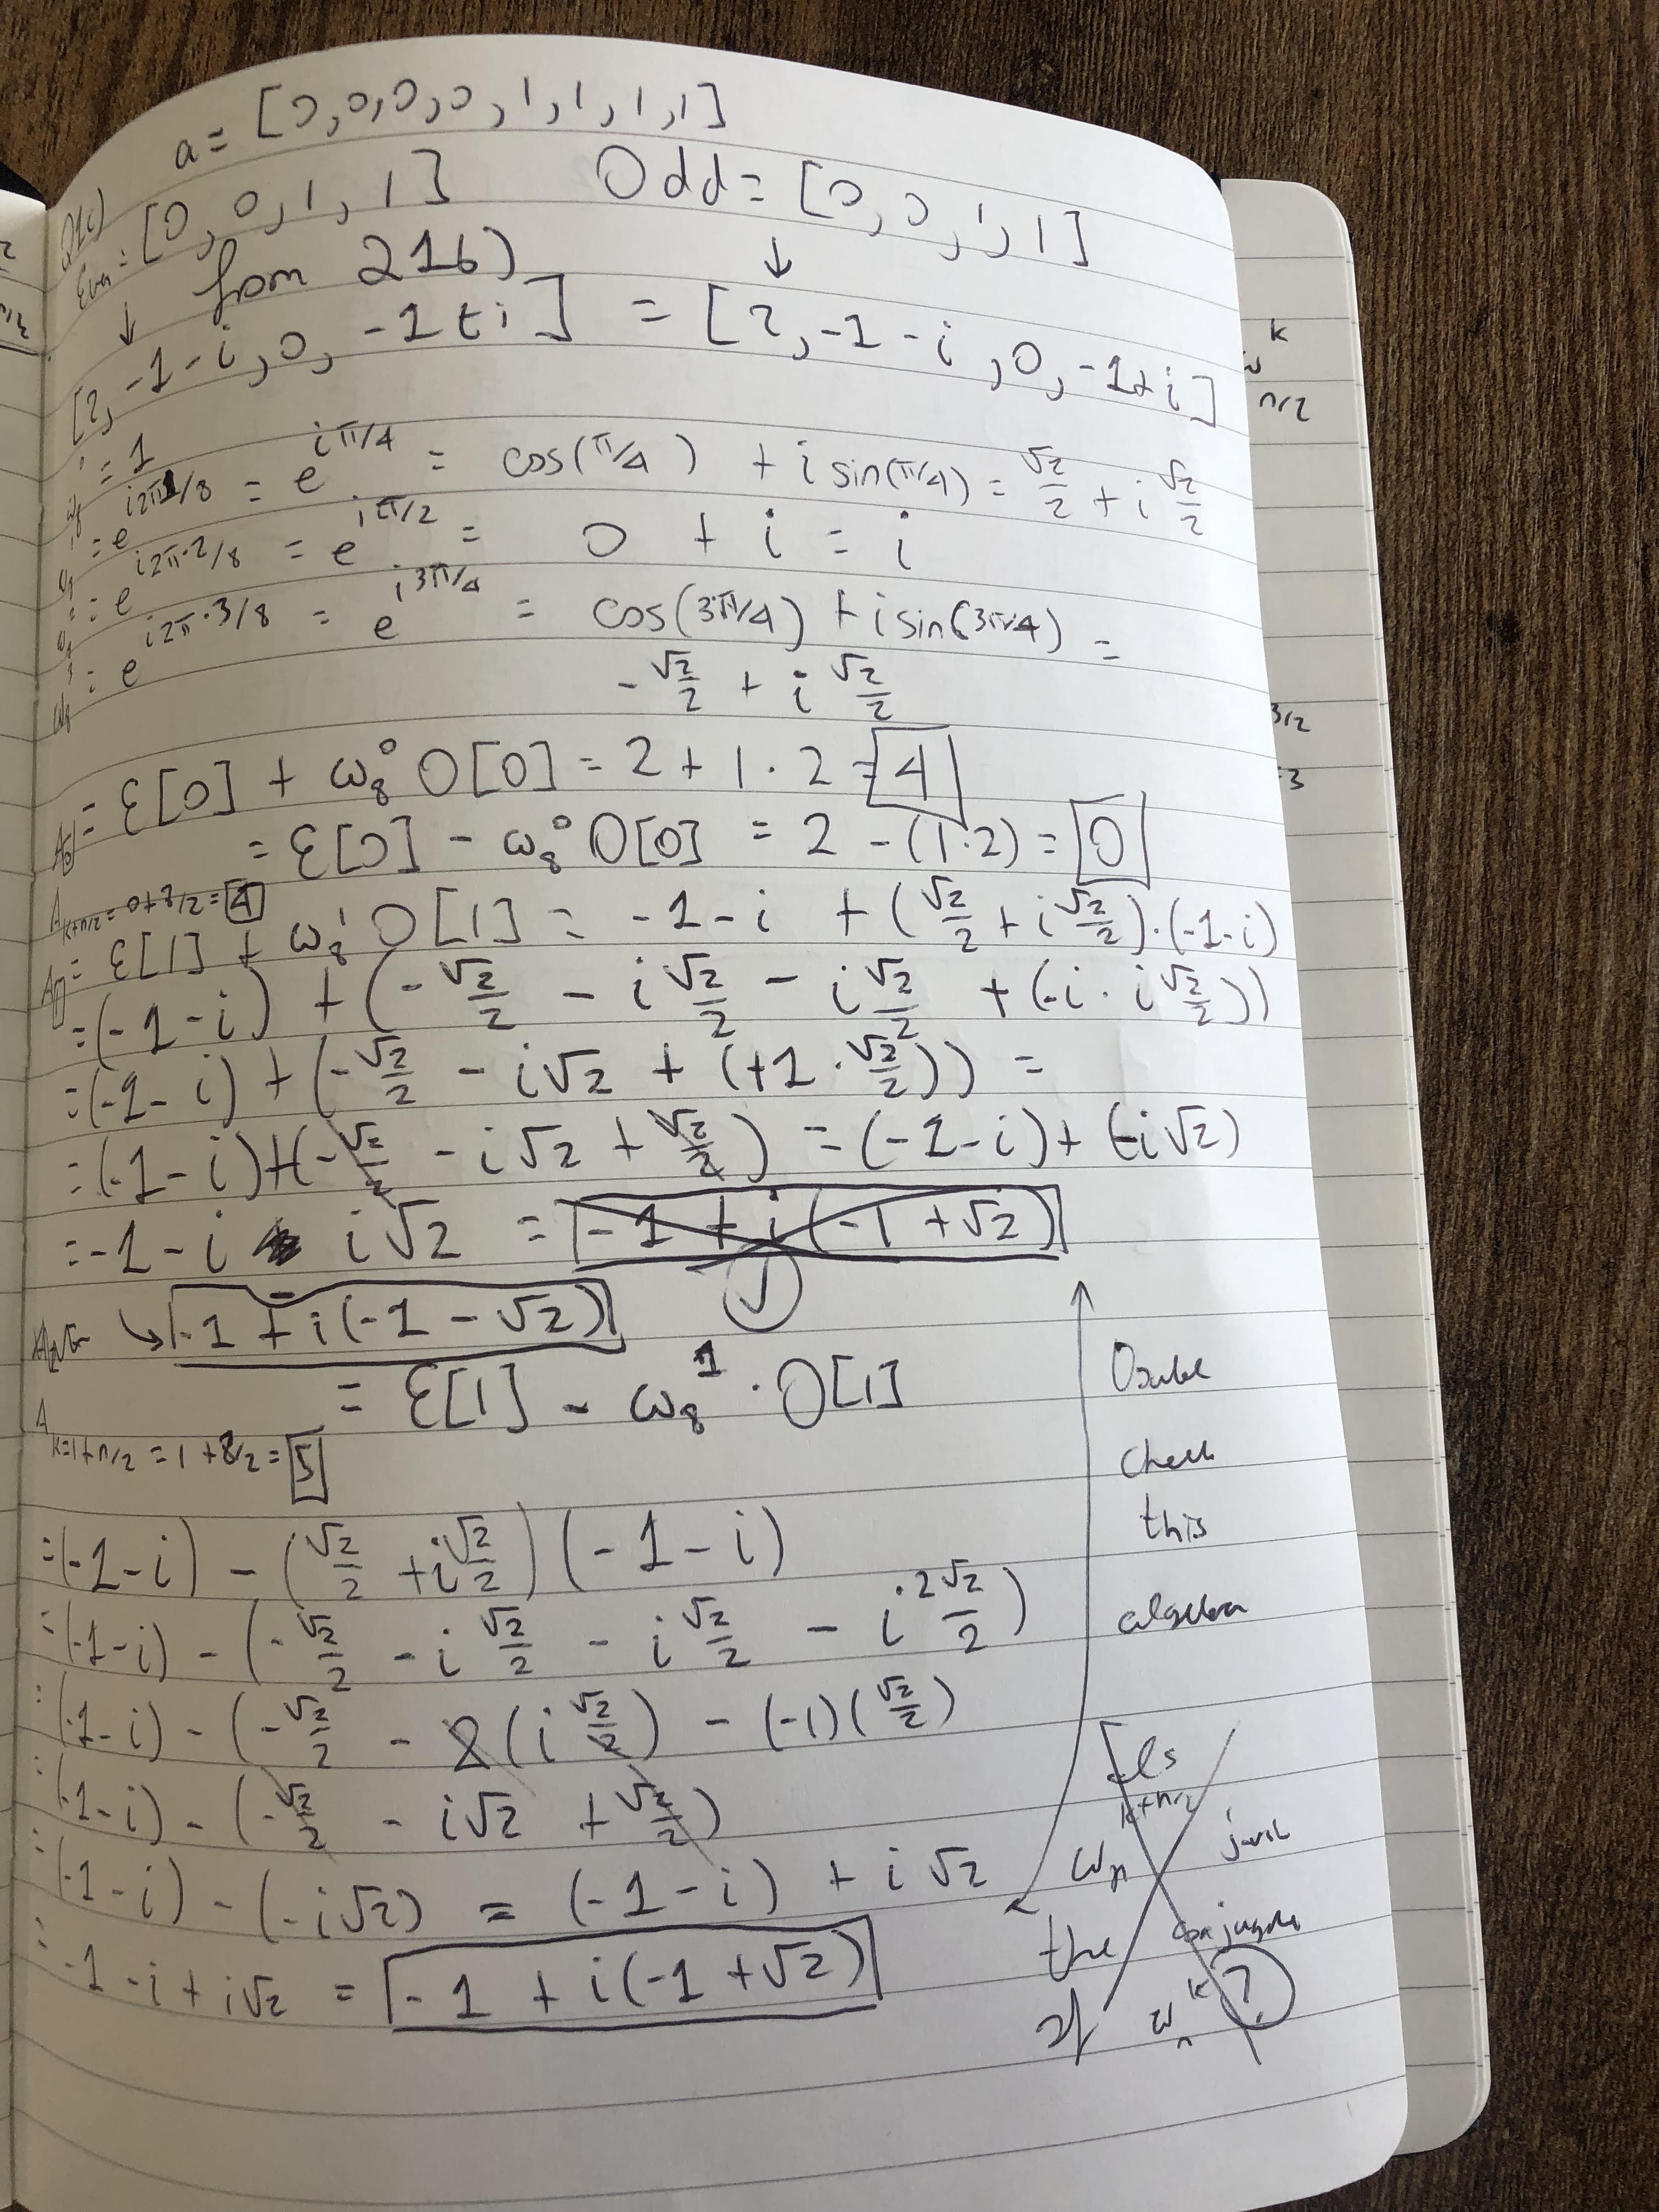 a = [0,0,0,0,1,1,1,1]
Q1c)
Even = [0, 0, 1, 1] Odd = [0, 0, 1, 1]
↓ from Q1b) ↓
[2, -1-i, 0, -1+i] = [2, -1-i, 0, -1+i]
ω₈⁰ = 1
ω₈¹ = e^{i2π1/8} = e^{iπ/4} = cos(π/4) + i sin(π/4) = √2/2 + i √2/2
ω₈² = e^{i2π·2/8} = e^{iπ/2} = 0 + i = i
ω₈³ = e^{i2π·3/8} = e^{i3π/4} = cos(3π/4) + i sin(3π/4) =
-√2/2 + i √2/2
A₀ = E[0] + ω₈⁰ O[0] = 2 + 1·2 = 4
A_{k+n/2=0+8/2=4} = E[0] - ω₈⁰ O[0] = 2 - (1·2) = 0
A = E[1] + ω₈¹ O[1] = -1-i + (√2/2 + i√2/2)·(-1-i)
= (-1-i) + (-√2/2 - i√2/2 - i√2/2 + (-i·i√2/2))
= (-1-i) + (-√2/2 - i√2 + (+1·√2/2)) =
= (-1-i) + (-√2/2 - i√2 + √2/2) = (-1-i) + (-i√2)
= -1-i - i√2 = -1 + i(-1+√2)
→ -1 + i(-1-√2) ✓
A_{k=1+n/2=1+8/2=5} = E[1] - ω₈¹·O[1]
= (-1-i) - (√2/2 + i√2/2)(-1-i)
= (-1-i) - (-√2/2 - i√2/2 - i√2/2 - i²√2/2)
= (-1-i) - (-√2/2 - 2(i√2/2) - (-1)(√2/2)
= (-1-i) - (-√2/2 - i√2 + √2/2)
= (-1-i) - (-i√2) = (-1-i) + i√2
= -1-i+i√2 = -1 + i(-1+√2)
Double
check
this
algebra
[Is
ωₙ^{k+n/2} just
the conjugate
of ωₙᵏ ?
ω^k
n/2
3/2
-3